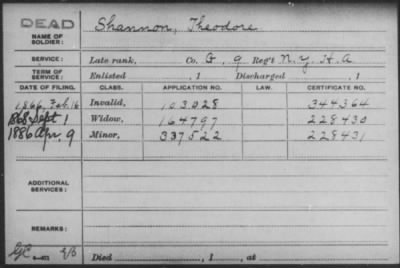 DEAD
NAME OF SOLDIER: Shannon, Theodore
SERVICE: Late rank, Co. G, 9 Reg't N.Y. H.A
TERM OF SERVICE: Enlisted , 1 Discharged , 1
DATE OF FILING. CLASS. APPLICATION NO. LAW. CERTIFICATE NO.
1866, Feb. 16 Invalid, 103.028 344364
868 Sept 1 Widow, 164797 228430
1886 Apr. 9 Minor, 337522 228431
ADDITIONAL SERVICES:
REMARKS:
Died , 1 , at